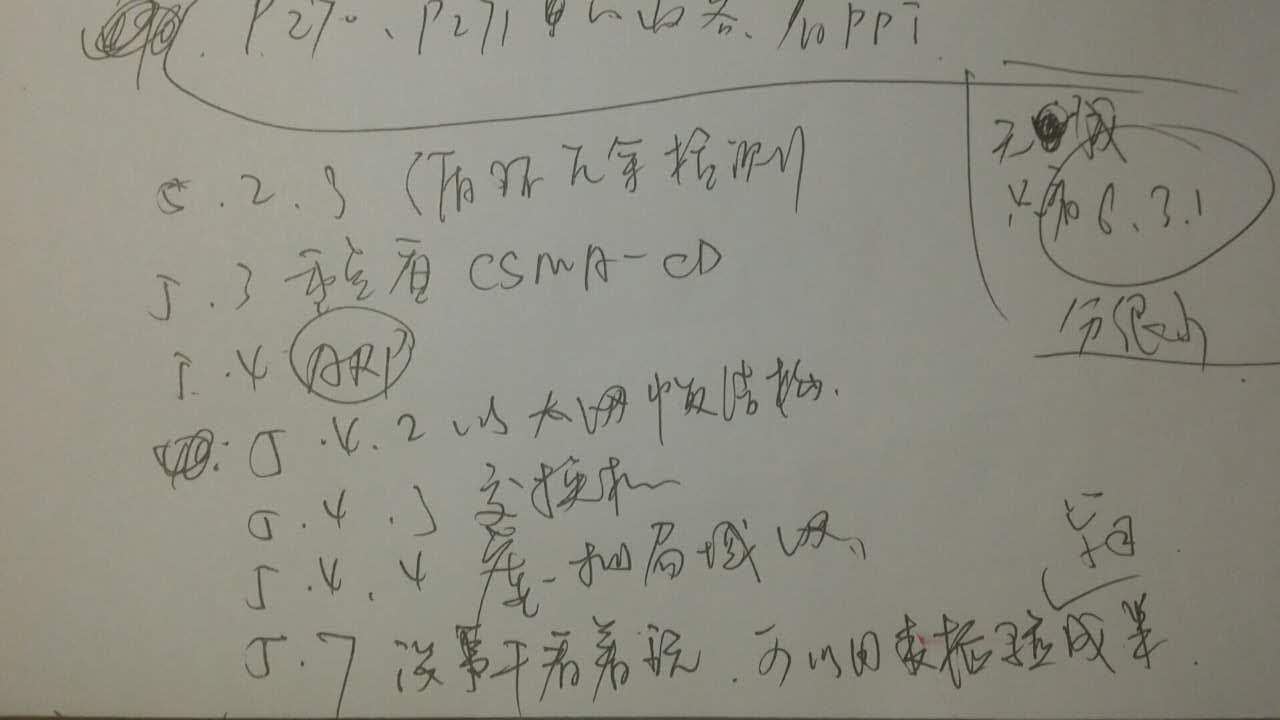 P270、P271 的内容、有PPT
5.2.3 (循环冗余检测)
5.3 重点看 CSMA-CD
5.4 ARP
5.4.2 以太网帧结构.
5.4.3 交换机
5.4.4 虚拟局域网
5.7 没事干看着玩. 可以用来
无线
只看 6.3.1
分很少